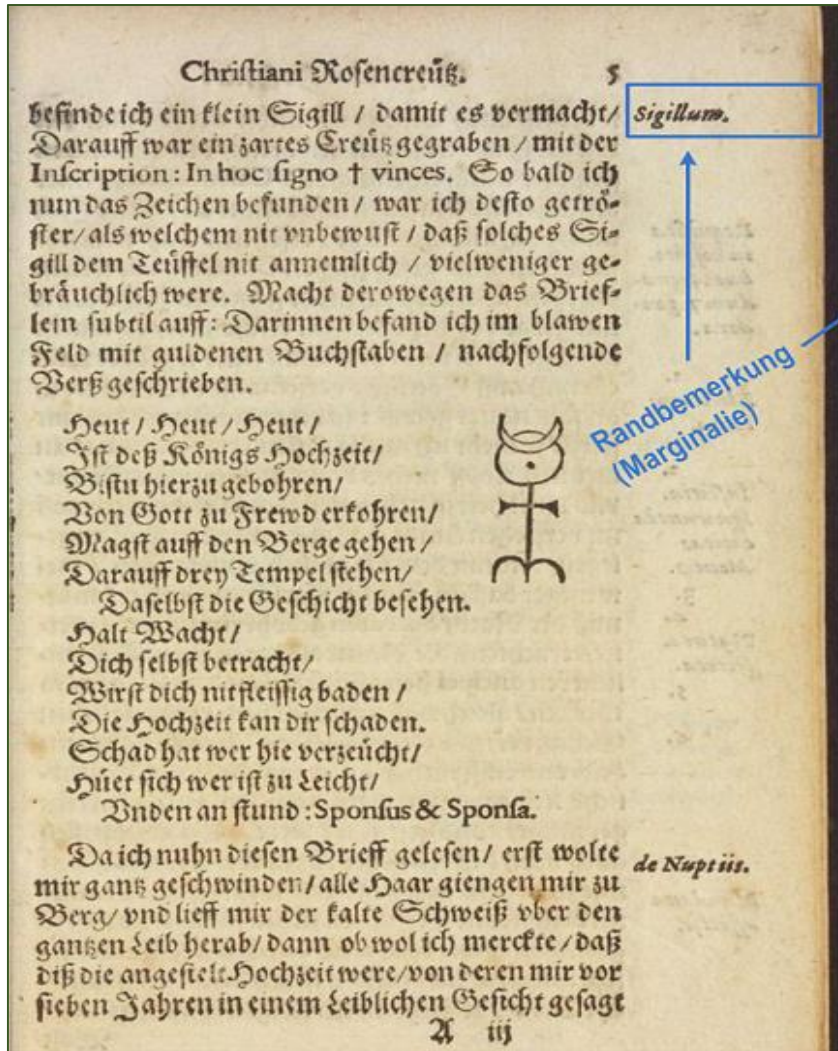 Chriſtiani Roſencreütz. 5
befinde ich ein klein Sigill / damit es vermacht/
Sigillum.
Darauff war ein zartes Creütz gegraben / mit der
Inſcription: In hoc ſigno † vinces. So bald ich
nun das Zeichen befunden / war ich deſto getrö-
ſter/ als welchem nit vnbewuſt / daß ſolches Si-
gill dem Teüffel nit annemlich / vielweniger ge-
bräuchlich were. Macht derowegen das Brief-
lem ſubtil auff: Darinnen befand ich im blawen
Feld mit guldenen Buchſtaben / nachfolgende
Verß geſchrieben.
Randbemerkung
(Marginalie)
Heut / Heut / Heut /
Iſt deß Königs Hochzeit/
Biſtu hierzu gebohren/
Von Gott zu Frewd erkohren/
Magſt auff den Berge gehen /
Darauff drey Tempel ſtehen/
Daſelbſt die Geſchicht beſehen.
Halt Wacht/
Dich ſelbſt betracht/
Wirſt dich nit fleiſſig baden /
Die Hochzeit kan dir ſchaden.
Schad hat wer hie verzeücht/
Hüet ſich wer iſt zu Leicht/
Vnden an ſtund: Sponſus & Sponſa.
Da ich nuhn dieſen Brieff geleſen/ erſt wolte
de Nuptiis.
mir gantz geſchwinden/ alle Haar giengen mir zu
Berg/ vnd lieff mir der kalte Schweiß vber den
gantzen Leib herab/ dann ob wol ich merckte/ daß
diß die angeſtelt Hochzeit were/ von deren mir vor
ſieben Jahren in einem Leiblichen Geſicht geſagt
A iij